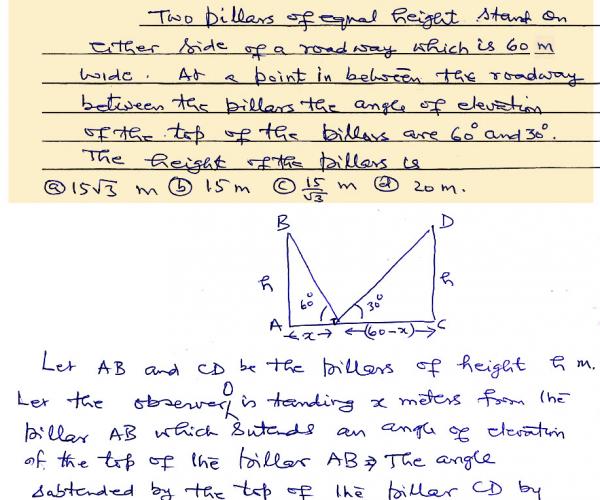 Two pillars of equal height stand on
either side of a roadway which is 60 m
wide. At a point in between the roadway
between the pillars the angle of elevation
of the top of the pillars are 60° and 30°.
The height of the pillars is
(a) 15√3 m (b) 15 m (c) 15/√3 m (d) 20 m.
B D
h 60° 30° h
A x (60-x) C
Let AB and CD be the pillars of height h m.
Let the observer O is tanding x meters from the
pillar AB which sutends an angle of elevation
of the top of the pillar AB → The angle
subtended by the top of the pillar CD by